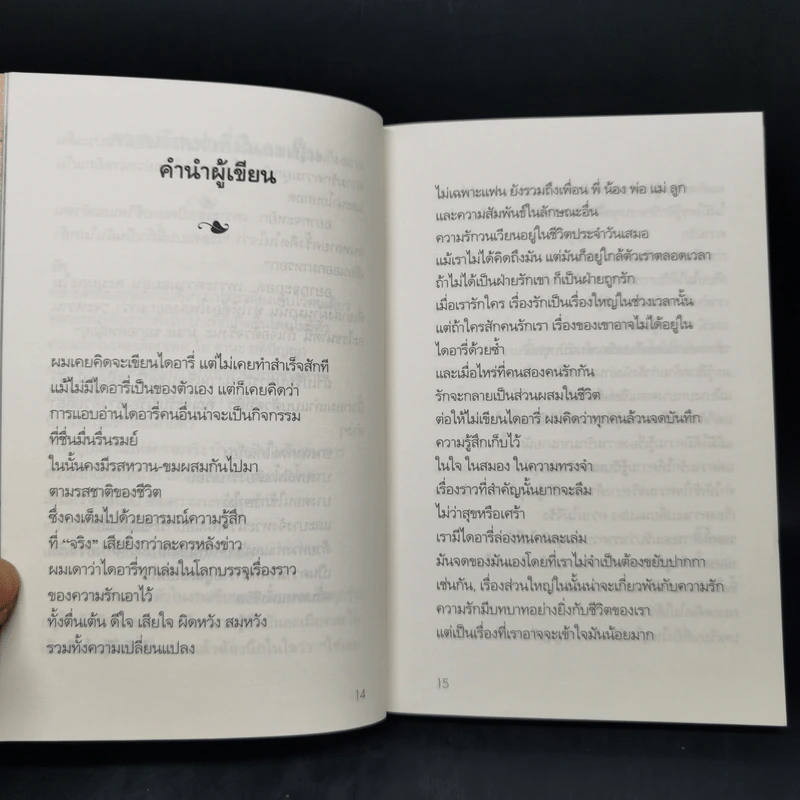 คำนำผู้เขียน
ผมเคยคิดจะเขียนไดอารี่ แต่ไม่เคยทำสำเร็จสักที
แม้ไม่มีไดอารี่เป็นของตัวเอง แต่ก็เคยคิดว่า
การแอบอ่านไดอารี่คนอื่นน่าจะเป็นกิจกรรม
ที่ชื่นมื่นรื่นรมย์
ในนั้นคงมีรสหวาน-ขมผสมกันไปมา
ตามรสชาติของชีวิต
ซึ่งคงเต็มไปด้วยอารมณ์ความรู้สึก
ที่ “จริง” เสียยิ่งกว่าละครหลังข่าว
ผมเดาว่าไดอารี่ทุกเล่มในโลกบรรจุเรื่องราว
ของความรักเอาไว้
ทั้งตื่นเต้น ดีใจ เสียใจ ผิดหวัง สมหวัง
รวมทั้งความเปลี่ยนแปลง
14
ไม่เฉพาะแฟน ยังรวมถึงเพื่อน พี่ น้อง พ่อ แม่ ลูก
และความสัมพันธ์ในลักษณะอื่น
ความรักวนเวียนอยู่ในชีวิตประจำวันเสมอ
แม้เราไม่ได้คิดถึงมัน แต่มันก็อยู่ใกล้ตัวเราตลอดเวลา
ถ้าไม่ได้เป็นฝ่ายรักเขา ก็เป็นฝ่ายถูกรัก
เมื่อเรารักใคร เรื่องรักเป็นเรื่องใหญ่ในช่วงเวลานั้น
แต่ถ้าใครสักคนรักเรา เรื่องของเขาอาจไม่ได้อยู่ใน
ไดอารี่ด้วยซ้ำ
และเมื่อไหร่ที่คนสองคนรักกัน
รักจะกลายเป็นส่วนผสมในชีวิต
ต่อให้ไม่เขียนไดอารี่ ผมคิดว่าทุกคนล้วนจดบันทึก
ความรู้สึกเก็บไว้
ในใจ ในสมอง ในความทรงจำ
เรื่องราวที่สำคัญนั้นยากจะลืม
ไม่ว่าสุขหรือเศร้า
เรามีไดอารี่ล่องหนคนละเล่ม
มันจดของมันเองโดยที่เราไม่จำเป็นต้องขยับปากกา
เช่นกัน, เรื่องส่วนใหญ่ในนั้นน่าจะเกี่ยวพันกับความรัก
ความรักมีบทบาทอย่างยิ่งกับชีวิตของเรา
แต่เป็นเรื่องที่เราอาจจะเข้าใจมันน้อยมาก
15